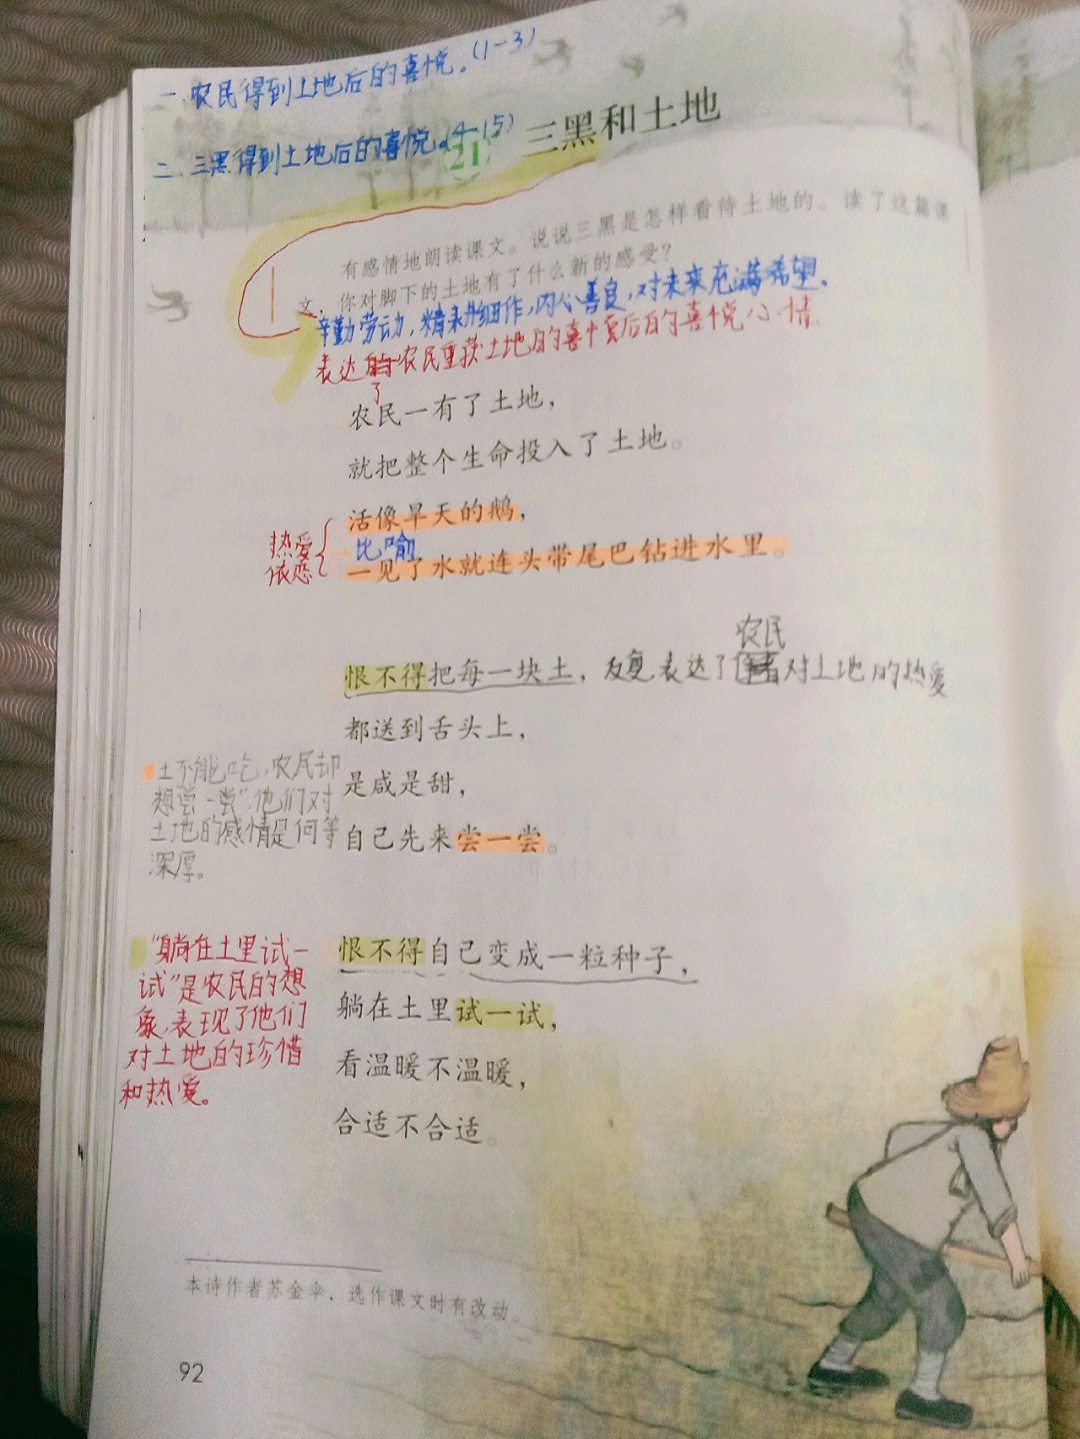 一.农民得到土地后的喜悦。(1-3)
二.三黑得到土地后的喜悦。(4-15)
21 三黑和土地
有感情地朗读课文。说说三黑是怎样看待土地的。读了这篇课
文,你对脚下的土地有了什么新的感受?
辛勤劳动,精耕细作,内心善良,对未来充满希望.
表达了农民重获土地的喜悦后的喜悦心情.
农民一有了土地,
就把整个生命投入了土地。
活像旱天的鹅,
热爱
依恋
比喻
一见了水就连头带尾巴钻进水里。
农民
恨不得把每一块土,反复.表达了对土地的热爱
都送到舌头上,
是咸是甜,
自己先来尝一尝。
土不能吃,农民却
想"尝一尝",他们对
土地的感情是何等
深厚。
恨不得自己变成一粒种子,
躺在土里试一试,
看温暖不温暖,
合适不合适。
"躺在土里试一
试"是农民的想
象,表现了他们
对土地的珍惜
和热爱。
本诗作者苏金伞,选作课文时有改动。
92